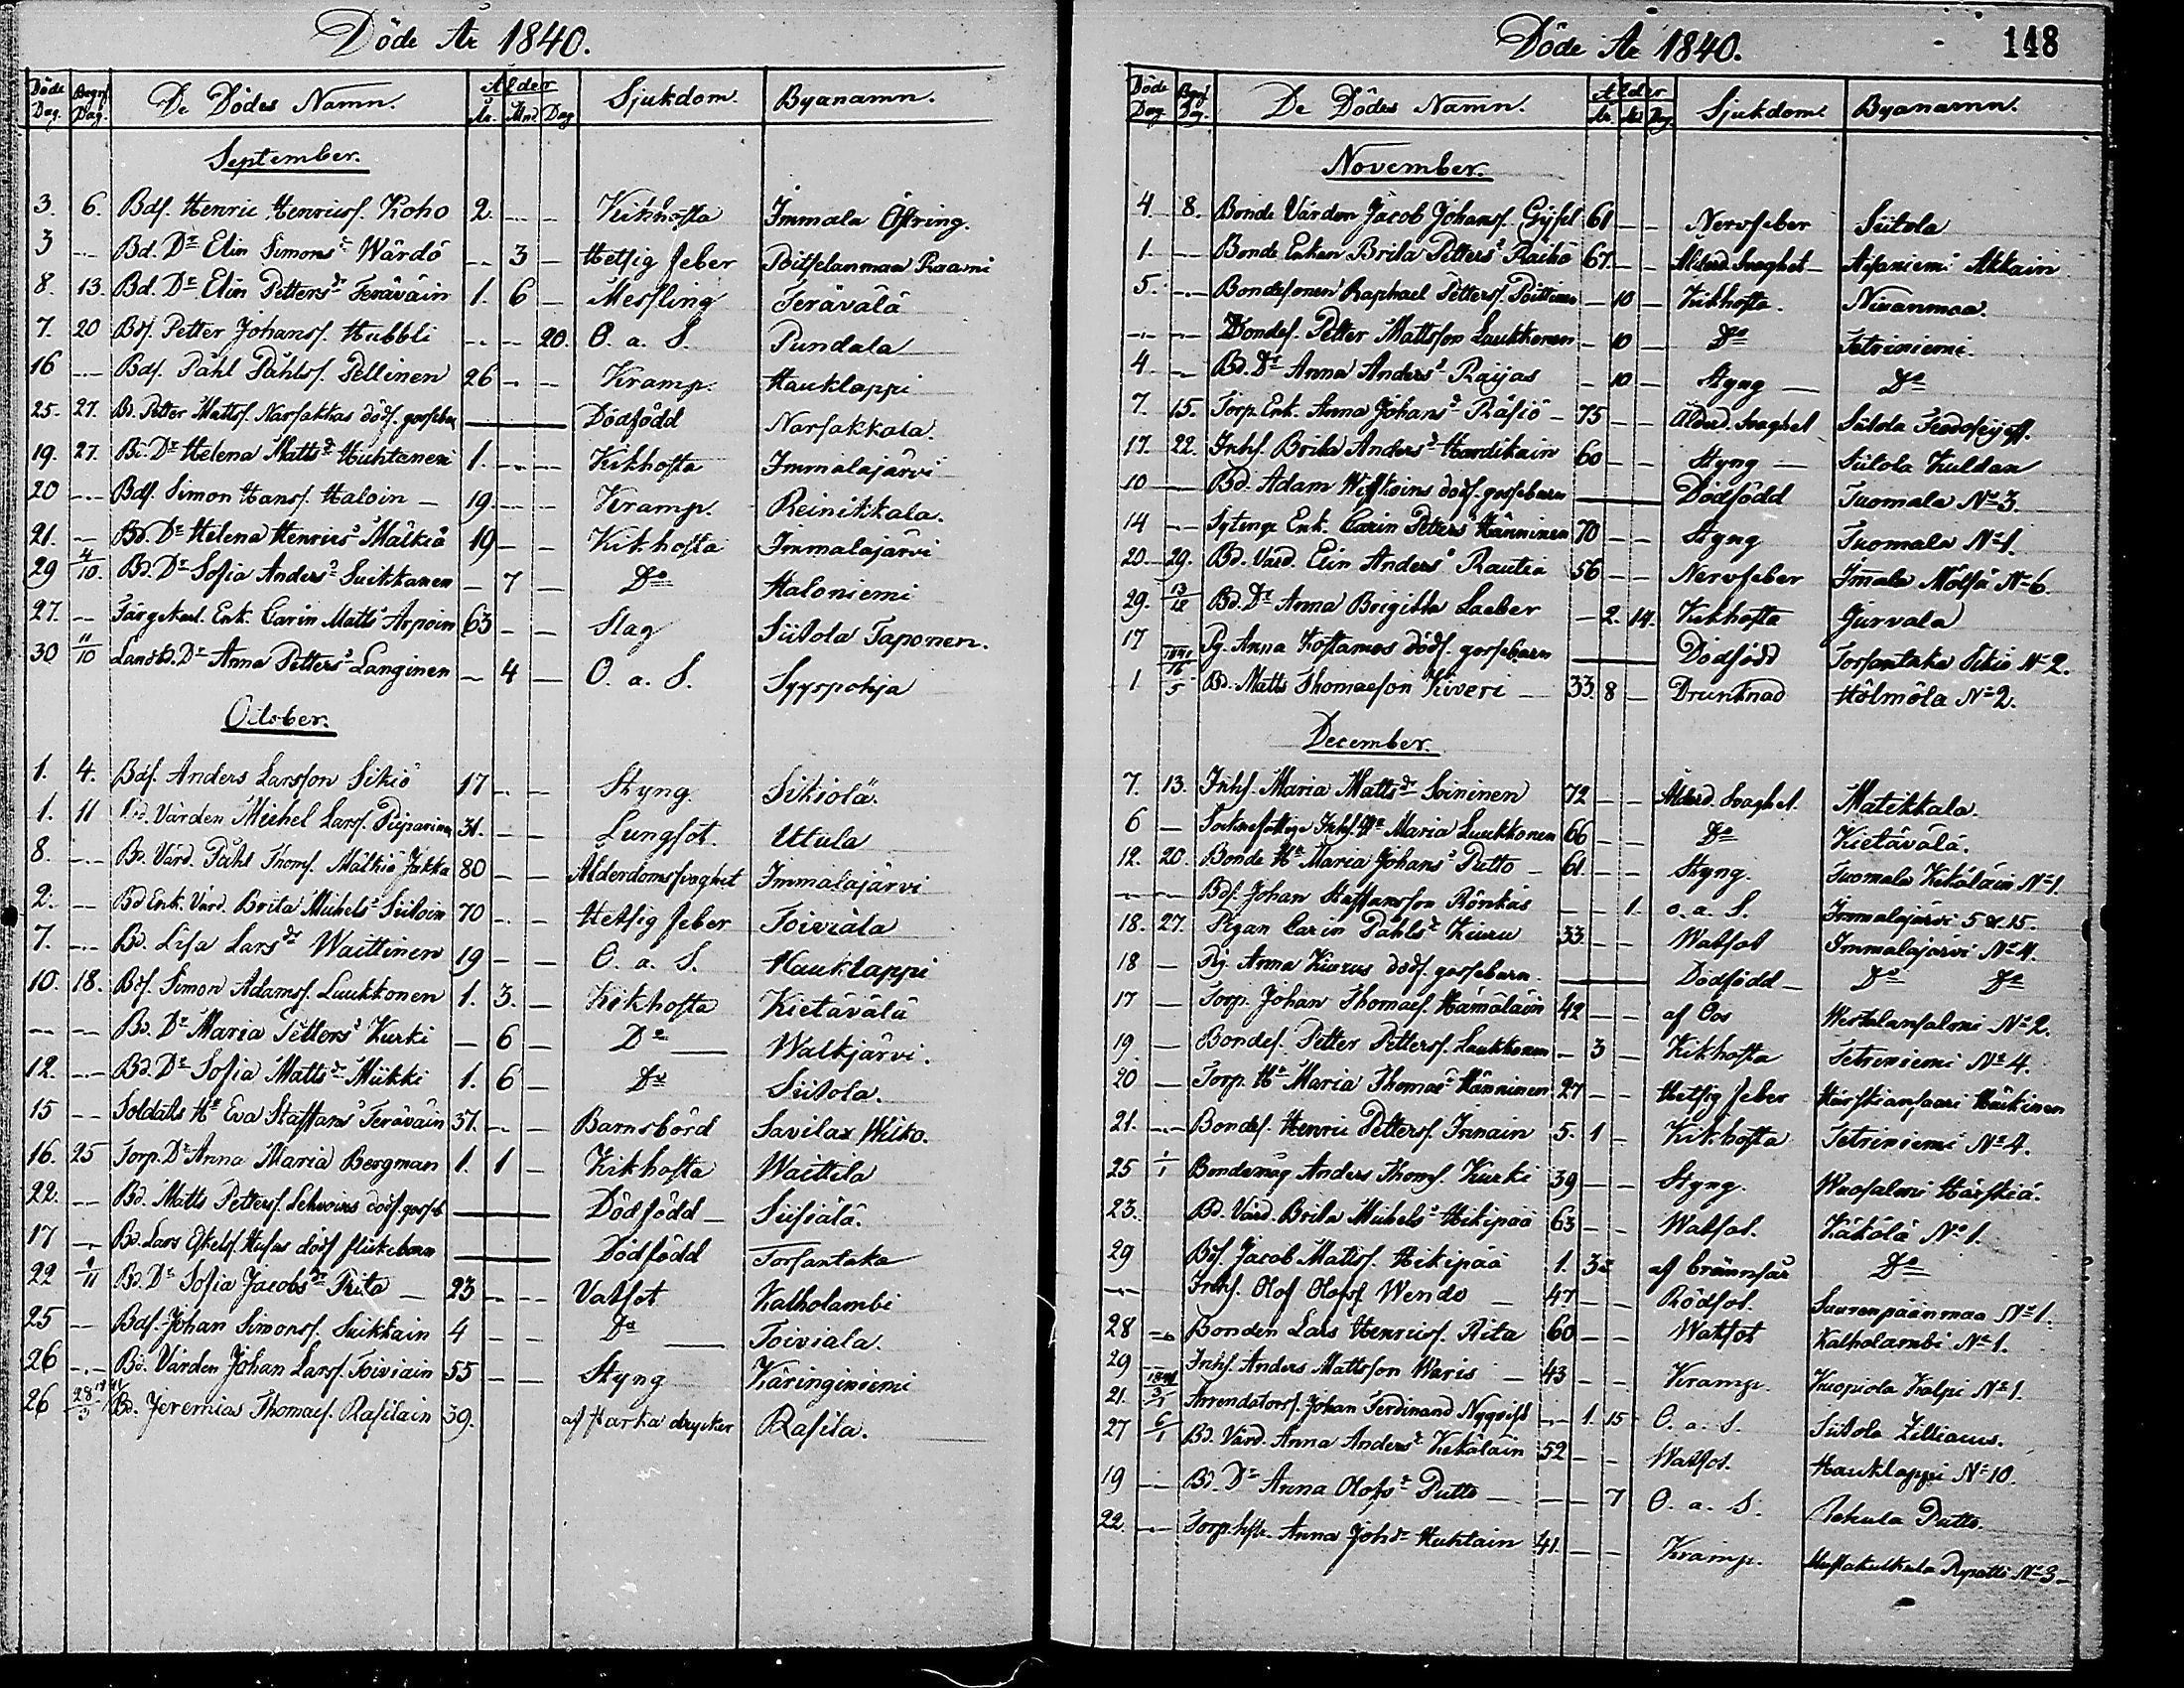 Döde År 1840.
Döde Dag. Begrf. Dag. De Dödes Namn. Ålder År. Mnd Dag Sjukdom. Byanamn.
September.
3. 6. Bdf. Henric Henricsf. Koho 2. - - Kikhosta Immala Östring.
3 - Bd. Dr Elin Simonsdr Wärdö - 3 - Hetsig feber Pitkelanmaa Raami
8. 13. Bd. Dr Elin Pettersdr Teräväin 1. 6 - Messling Terävälä
7. 20 Bdf. Petter Johansf. Hubbli - - 20. O. a. S. Pundala
16 - Bdf. Påhl Påhlsf. Pellinen 26 - - Kramp. Hauklappi
25. 27. Bd. Petter Mattsf. Narsakkas dödf. gossebarn Dödfödd Narsakkala.
19. 27. Bd. Dr Helena Mattsdr Huhtanen 1. - - Kikhosta Immalajärvi
20 - Bdf. Simon Hansf. Haloin - 19. - - Kramp. Reinikkala.
21. - Bd. Dr Helena Henricsdr Mälkiä 19 - - Kikhosta Immalajärvi
29 4/10. Bd. Dr Sofia Andersdr Suikkanen - 7 - Do Haloniemi
27. - Färgekarl. Enk. Carin Mattsdr Arpoin 63 - - Slag Siitola Taponen.
30 11/10 Landsk. Dr Anna Pettersdr Langinen - 4 - O. a. S. Syyspohja
October.
1. 4. Bdf. Anders Larsson Sikiö 17 - - Styng. Sikiölä.
1. 11 Bd. Värden Michel Larsf. Piiparinen 31. - - Lungsot. Utula
8. - Bd. Värd. Påhl Thomsf. Mälkiä Jakka 80 - - Ålderdomssvaghet Immalajärvi
2. - Bd Enk. Värd. Brita Michelsdr Siitoin 70 - - Hetsig feber Toiviala
7. - Bd. Lisa Larsdr Waittinen 19 - - O. a. S. Hauklappi
10. 18. Bdf. Simon Adamsf. Luukkonen 1. 3. - Kikhosta Kietävälä
- - Bd. Dr Maria Pettersdr Kurki - 6 - Do Walkjärvi.
12. - Bd. Dr Sofia Mattsdr Miikki 1. 6 - Do Siitola.
15 - Soldats Hu Eva Staffansdr Teräväin 37. - - Barnsbörd Savilax Wilko.
16. 25 Torp. Dr Anna Maria Bergman 1. 1 - Kikhosta Waittila
22. - Bd. Matts Pettersf. Lehvoins dödf. gosseb Dödfödd - Siisiälä.
17 - Bd. Lars Eskelsf. Hufas dödf flickebarn Dödfödd Torsantaka
22 1/11 Bd. Dr Sofia Jacobsdr Rita - 23 - - Vatsot Katholambi
25 - Bdf. Johan Simonsf. Suikkain 4 - - Do Toiviala.
26 - Bd. Värden Johan Larsf. Toiviain 55 - - Styng Käringiniemi
26 28/3 1841 Bd. Jeremias Thomaef. Rasilain 39. af starka drycker Rasila.
Döde År 1840. 148
Döde Dag Begrf Dag. De Dödes Namn. Ålder År. Md Dag. Sjukdom. Byanamn.
November.
4 8. Bonde Värden Jacob Johansf. Gijsel 61 - - Nervfeber Siitola
1. - Bonde Enkan Brita Pettersdr Raihö 67. - - Ålderd. Svaghet - Aisaniemi Akkain
5. - Bondesonen Raphael Pettersf. Pöittinen - 10 - Kikhosta. Nivanmaa.
- - Bondes. Petter Mattsson Luukkonen - 10 - Do Tetriniemi.
4. - Bd. Dr Anna Andersdr Raijas - 10 - Styng - Do
7. 15. Torp. Enk. Anna Johansdr Räsiö - 75 - - Ålderd. Svaghet Siitola
17. 22. Inhf. Brita Andersdr Hardikain 60 - - Styng - Siitola Kuldan
10 - Bd. Adam dödf. gossebarn Dödfödd Tuomala No 3.
14 - Enk. Carin Pettersdr Hänninen 70 - - Styng Tuomala No 1.
20. 29. Bd. Värd. Elin Andersdr Rautia 56 - - Nervfeber Immala Mölsä No 6.
29. 13/12 Bd. Dr Anna Brigitta Laeber - 2. 14. Kikhosta Jurvala
17 Pg. Anna Kostamos dödf. gossebarn Dödfödd Torsantaka Sikiö No 2.
1 1841 16/5 Bd. Matts Thomaeson Kiveri - 33. 8 - Drunknad Hölmölä No 2.
December.
7. 13. Inhf. Maria Mattsdr Soininen 72 - - Ålderd. Svaghet. Matikkala.
6 - Socknefattige Inhf. Hu Maria Luukkonen 66 - - Do Kietävälä.
12. 20. Bonde Hu Maria Johansdr Putto - 61. - - Styng. Tuomala Kekäläin No 1.
- - Bdf. Johan Staffansson Rönkäs - - 1. o. a. S. Immalajärvi 5 & 15.
18. 27. Pigan Carin Påhlsdr Kiuru 33. - - Watsot Immalajärvi No 4.
18 - Pg. Anna Kiurus dödf. gossebarn. Dödfödd - Do Do
17 - Torp. Johan Thomaef. Hämäläin 42 - - af Oos Weitelansaloni No 2.
19. - Bondef. Petter Pettersf. Luukkonen - 3 - Kikhosta Tetriniemi No 4.
20 - Torp. Hu Maria Thomasdr Hänninen 27 - - Hetsig feber Härskiansaari Häkinen
21. - Bondef. Henric Pettersf. Innain 5. 1 - Kikhosta Tetriniemi No 4.
25 1/1 Bondemåg Anders Thomsf. Kurki 39 - - Styng. Wuosalmi Härskiä.
23. Bd. Värd. Brita Michelsdr Hikipää 63 - - Watsot. Käkölä No 1.
29 Bdf. Jacob Mattsf. Hikipää 1. 3 - af brännsår Do
- Inhf. Olof Olofsf Wende - 47 - - Rödsot. Suurenpäänmaa No 1.
28 - Bonden Lars Henricsf. Rita 60 - - Watsot Katholambi No 1.
29 - Inhf. Anders Mattsson Waris - 43 - - Kramp. Kuopiola Kalpi No 1.
21. 1841 3/1 Arrendatorsf. Johan Ferdinand Nyqvist - 1. 15 O. a. S. Siitola Zilliacus.
27 6/1 Bd. Värd. Anna Andersdr Kekäläin 52 - - Watsot. Hauklappi No 10.
19 - Bd. Dr Anna Olofsdr Putto - - - 7 O. a. S. Rekula Putto.
22. - Torp. hstr. Anna Johsdr Huhtain 41. - - Kramp. No 3 -